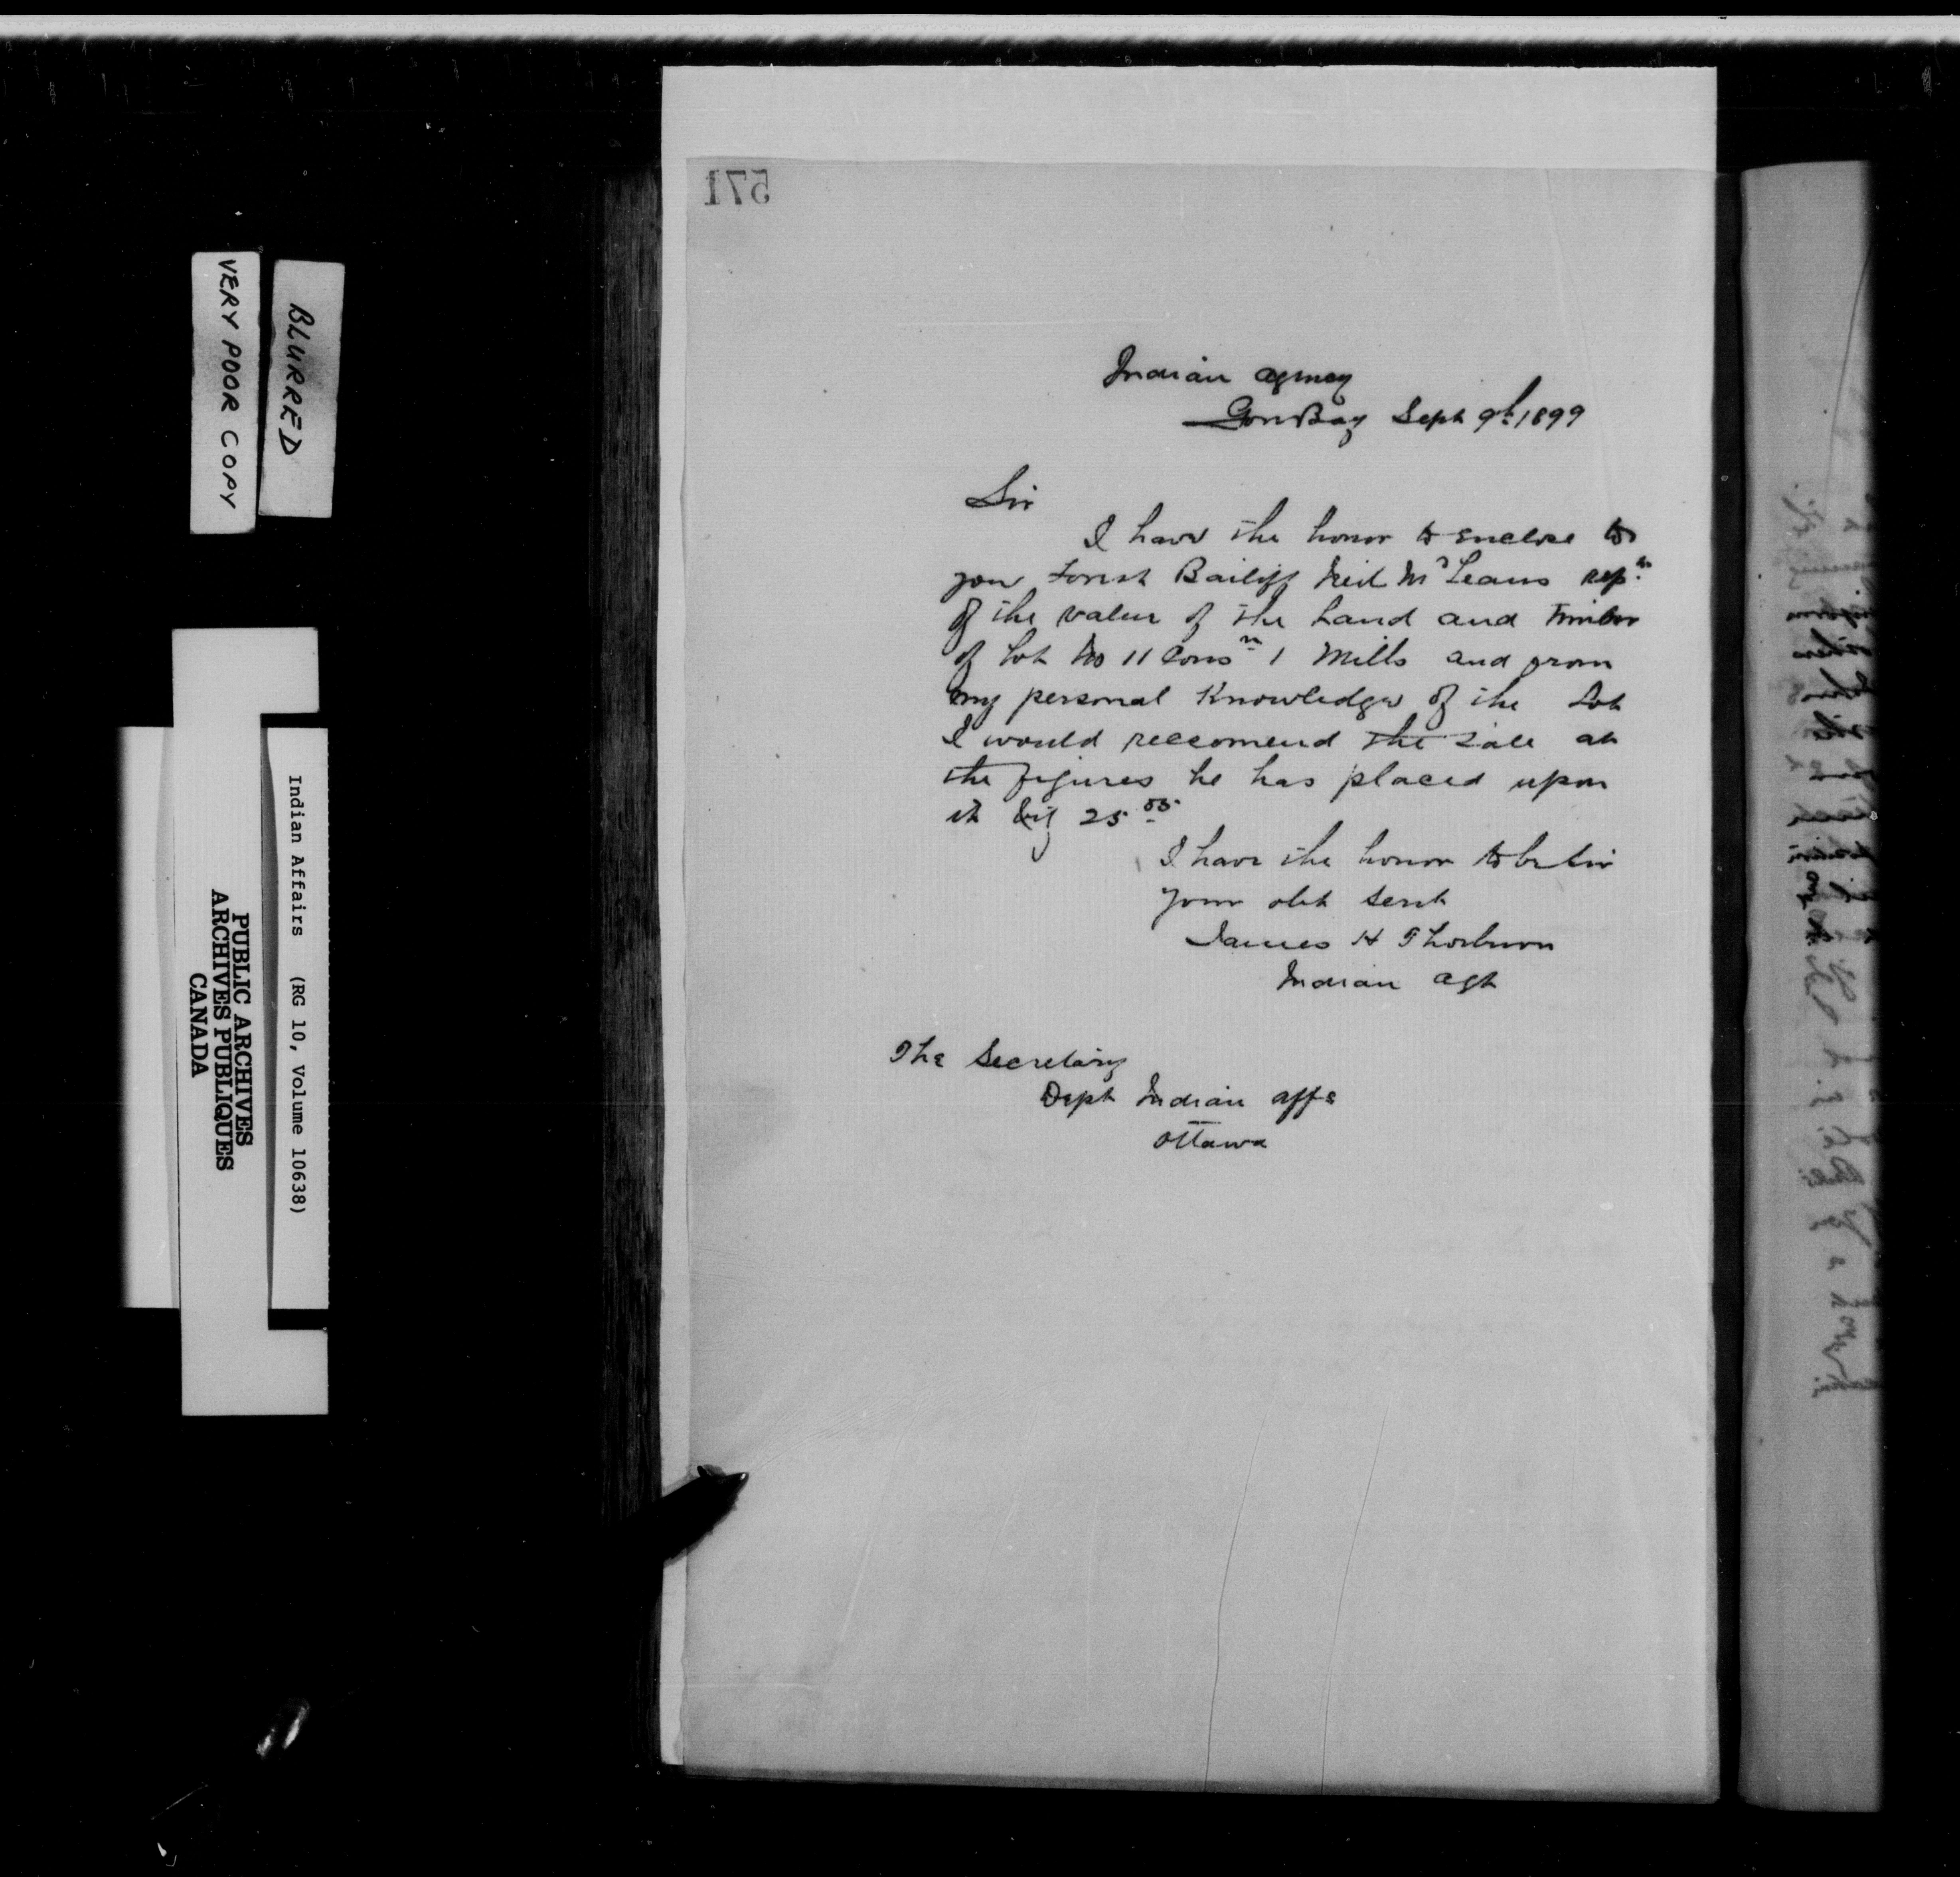 571
Indian Agency
Gore Bay Sept 9th 1899
Sir
I have the honor to enclose to
you Forest Bailiff Neil McLeans rep
of the value of the Land and Timber
of Lot No 11 Cons n 1 Mills and from
my personal Knowledge of the Lot
I would reccomend the sale at
the figures he has placed upon
it viz 25.00
I have the honor to be Sir
your obt Servt
James H Thorburn
Indian Agt
The Secretary
Dept Indian Affs
Ottawa
BLURRED
VERY POOR COPY
Indian Affairs (RG 10, Volume 10638)
PUBLIC ARCHIVES
ARCHIVES PUBLIQUES
CANADA